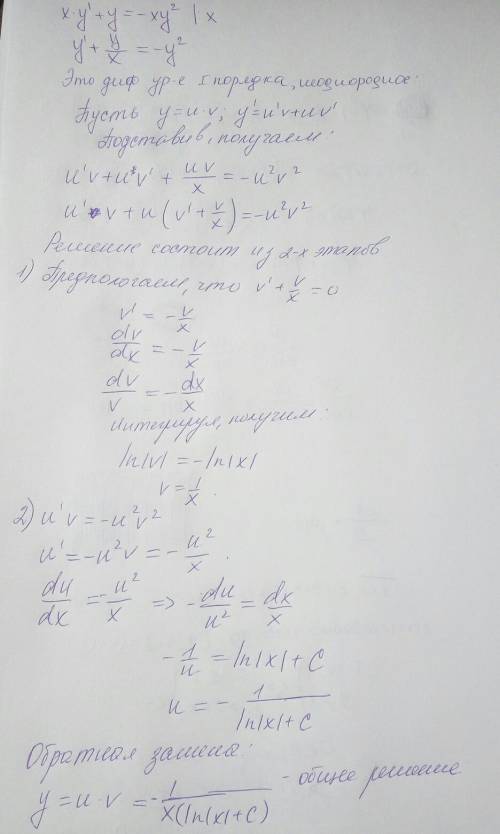 x·y' + y = -xy² | x
y' + y/x = -y²
Это диф ур-е I порядка,
Пусть y = u·v; y' = u'v + uv'
Подставив, получаем:
u'v + u v' + uv/x = -u²v²
u' v + u (v' + v/x) = -u²v²
Решение состоит из 2-х этапов
1) Предпологаем, что v' + v/x = 0
v' = -v/x
dv/dx = -v/x
dv/v = -dx/x
Интегрируя, получим:
ln|v| = -ln|x|
v = 1/x.
2) u'v = -u²v²
u' = -u²v = -u²/x.
du/dx = -u²/x => -du/u² = dx/x
-1/u = ln|x| + C
u = -1/(ln|x| + C)
Обратная замена:
y = u·v = -1/(x(ln|x| + C)) - общее решение